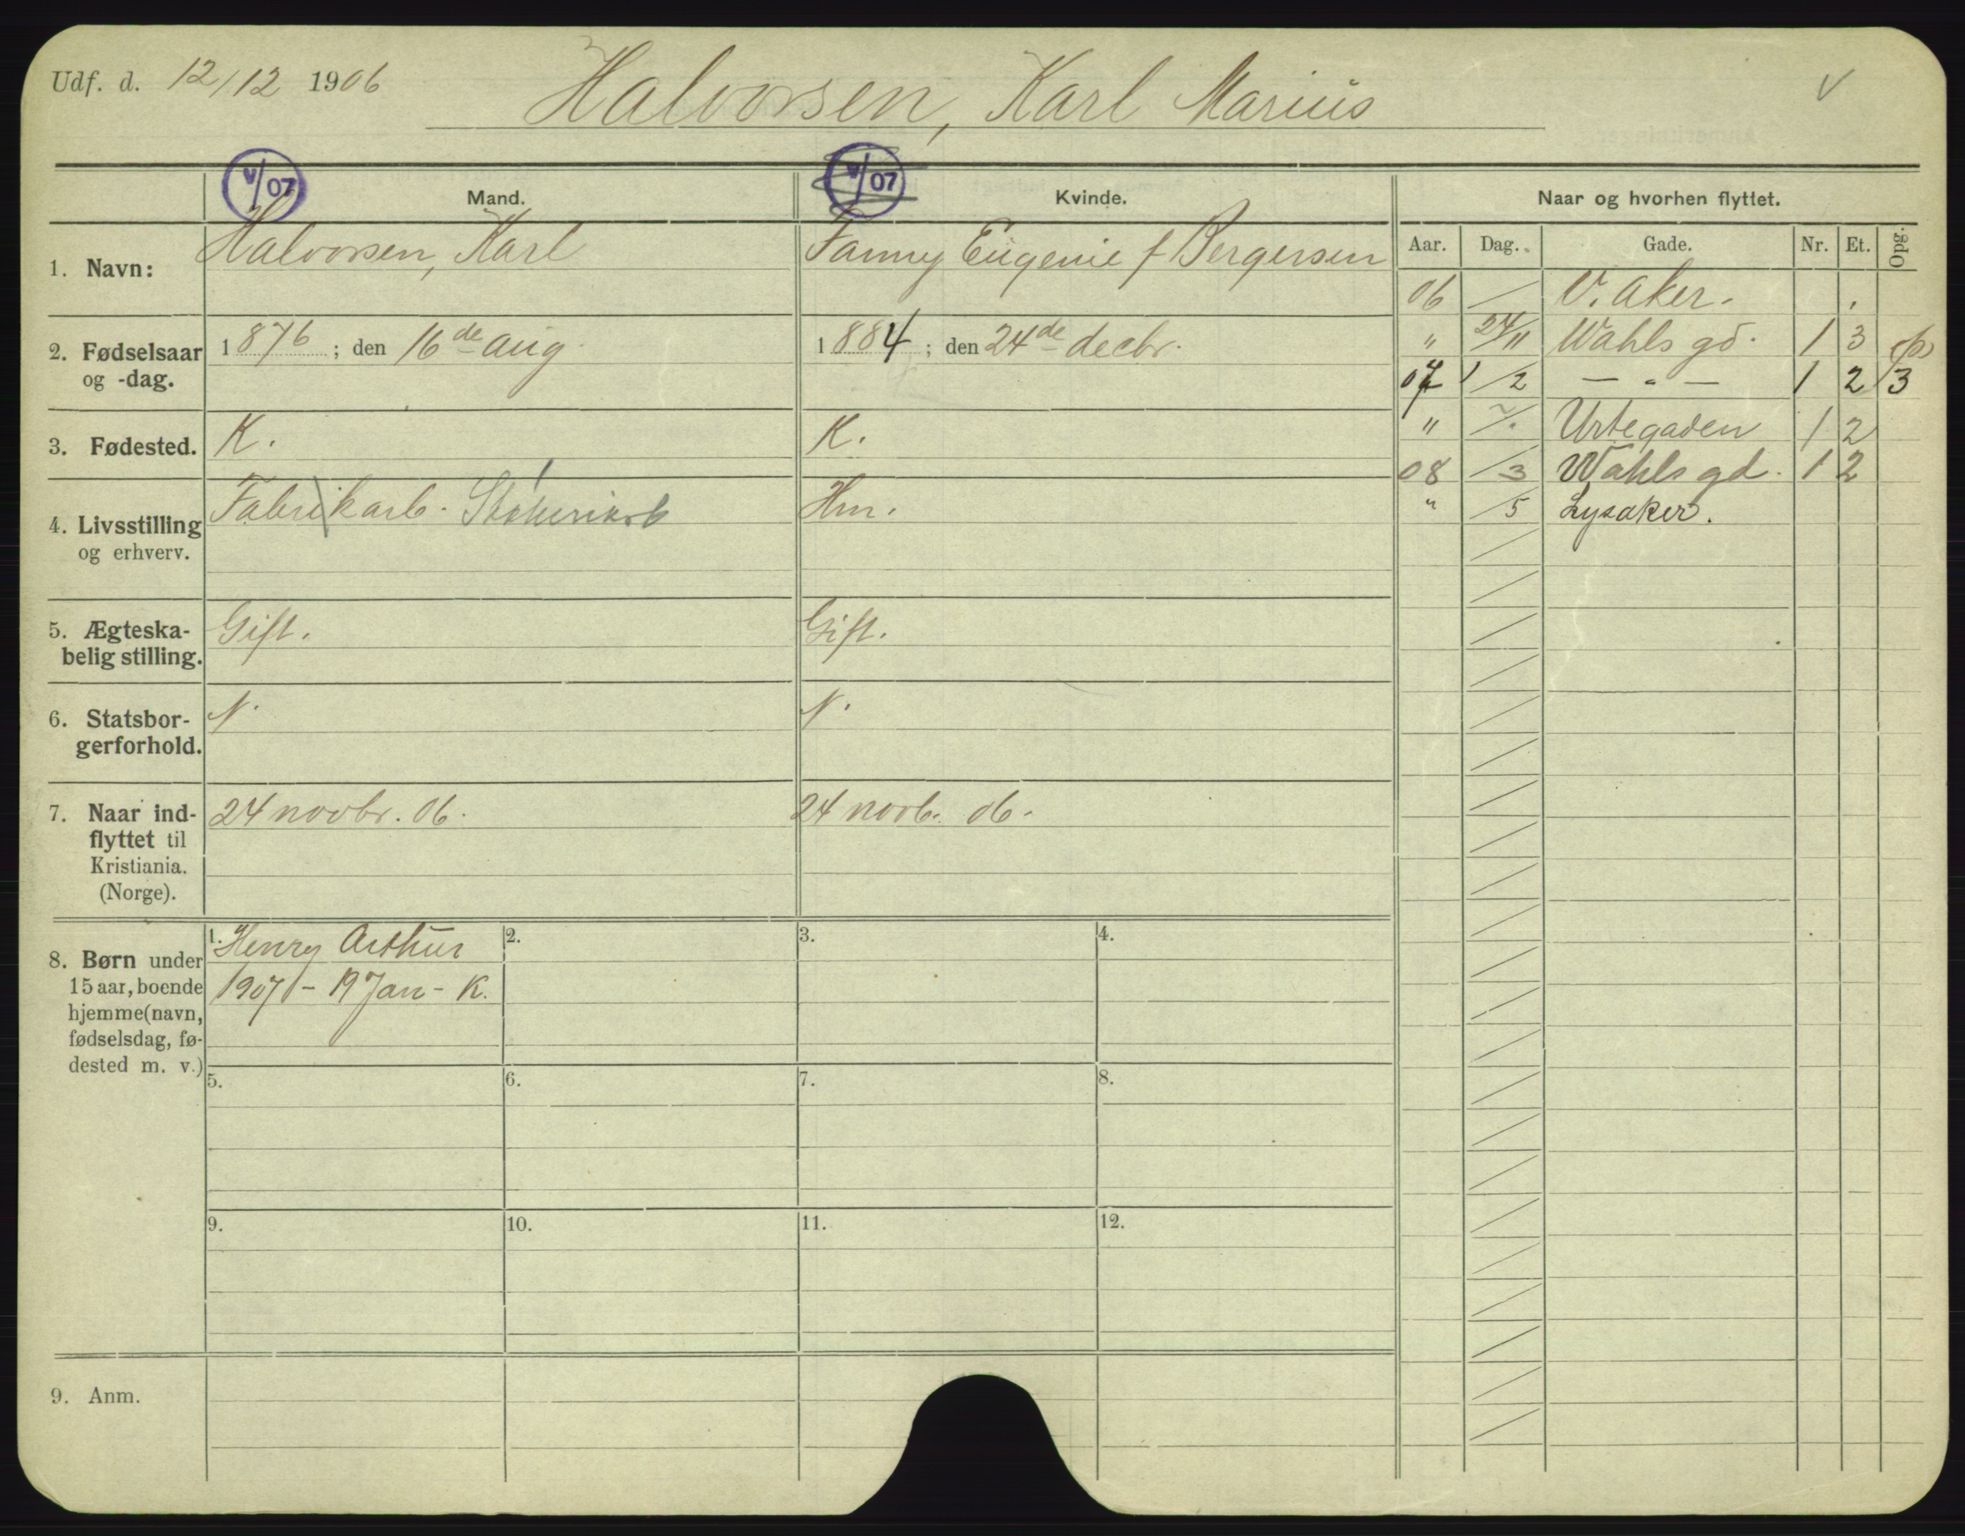 Udf. d. 12/12 1906
Halvorsen, Karl Marius
V
V/07
V/07
Mand.
Kvinde.
Naar og hvorhen flyttet.
Aar. Dag. Gade. Nr. Et. Opg.
1. Navn: Halvorsen, Karl
Fanny Eugenie f Bergersen
2. Fødselsaar og -dag.
1876; den 16de aug.
1884; den 24de decbr.
3. Fødested. K. K.
4. Livsstilling og erhverv.
Fabrikarb.
Hm.
5. Ægteska-
belig stilling.
Gift. Gift.
6. Statsbor-
gerforhold.
N. N.
7. Naar ind-
flyttet til
Kristiania.
(Norge).
24 novbr. 06.
24 novb. 06.
06 / V. Aker.
" 24/11 Wahls gd. 1 3
07 1/2 — " — 1 2 3
" Urtegaden 1 2
08 /3 Wahls gd. 1 2
" /5 Lysaker.
8. Børn under
15 aar, boende
hjemme (navn,
fødselsdag, fø-
dested m. v.)
1. Henry Arthur
1907 - 19 Jan - K.
2. 3. 4.
5. 6. 7. 8.
9. 10. 11. 12.
9. Anm.